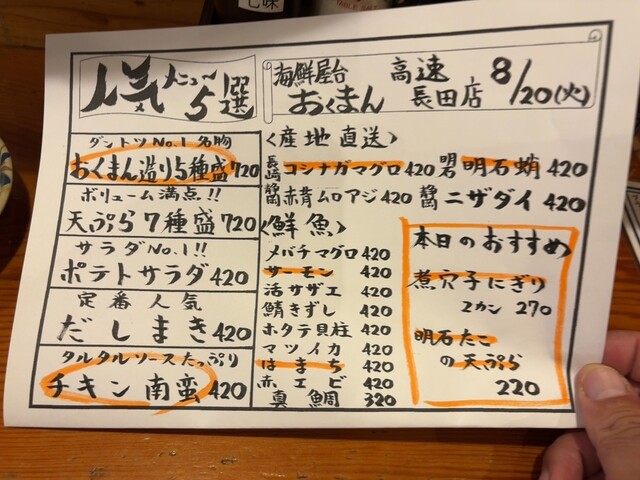 七味
人気メニュー5選
海鮮屋台
おくまん
高速
長田店
8/20(火)
ダントツNo.1名物
おくまん造り5種盛720
ボリューム満点!!
天ぷら7種盛720
サラダNo.1!!
ポテトサラダ420
定番人気
だしまき420
タルタルソースたっぷり
チキン南蛮420
<産地直送>
長崎コシナガマグロ420
明石明石蛸420
静岡赤背ムロアジ420
静岡ニザダイ420
<鮮魚>
メバチマグロ420
サーモン420
活サザエ420
鯖きずし420
ホタテ貝柱420
マツイカ420
はまち420
赤エビ420
真鯛320
本日のおすすめ
煮穴子にぎり
2カン270
明石たこ
の天ぷら
220